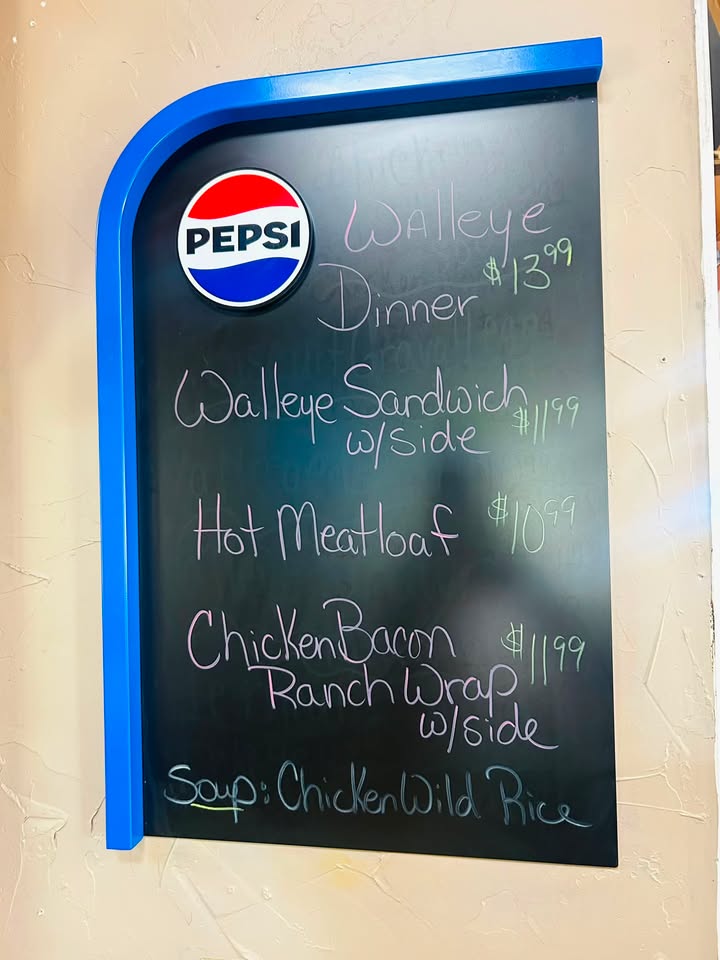 PEPSI
Walleye
Dinner $13.99
Walleye Sandwich
w/side $11.99
Hot Meatloaf $10.99
Chicken Bacon $11.99
Ranch Wrap
w/side
Soup: Chicken Wild Rice